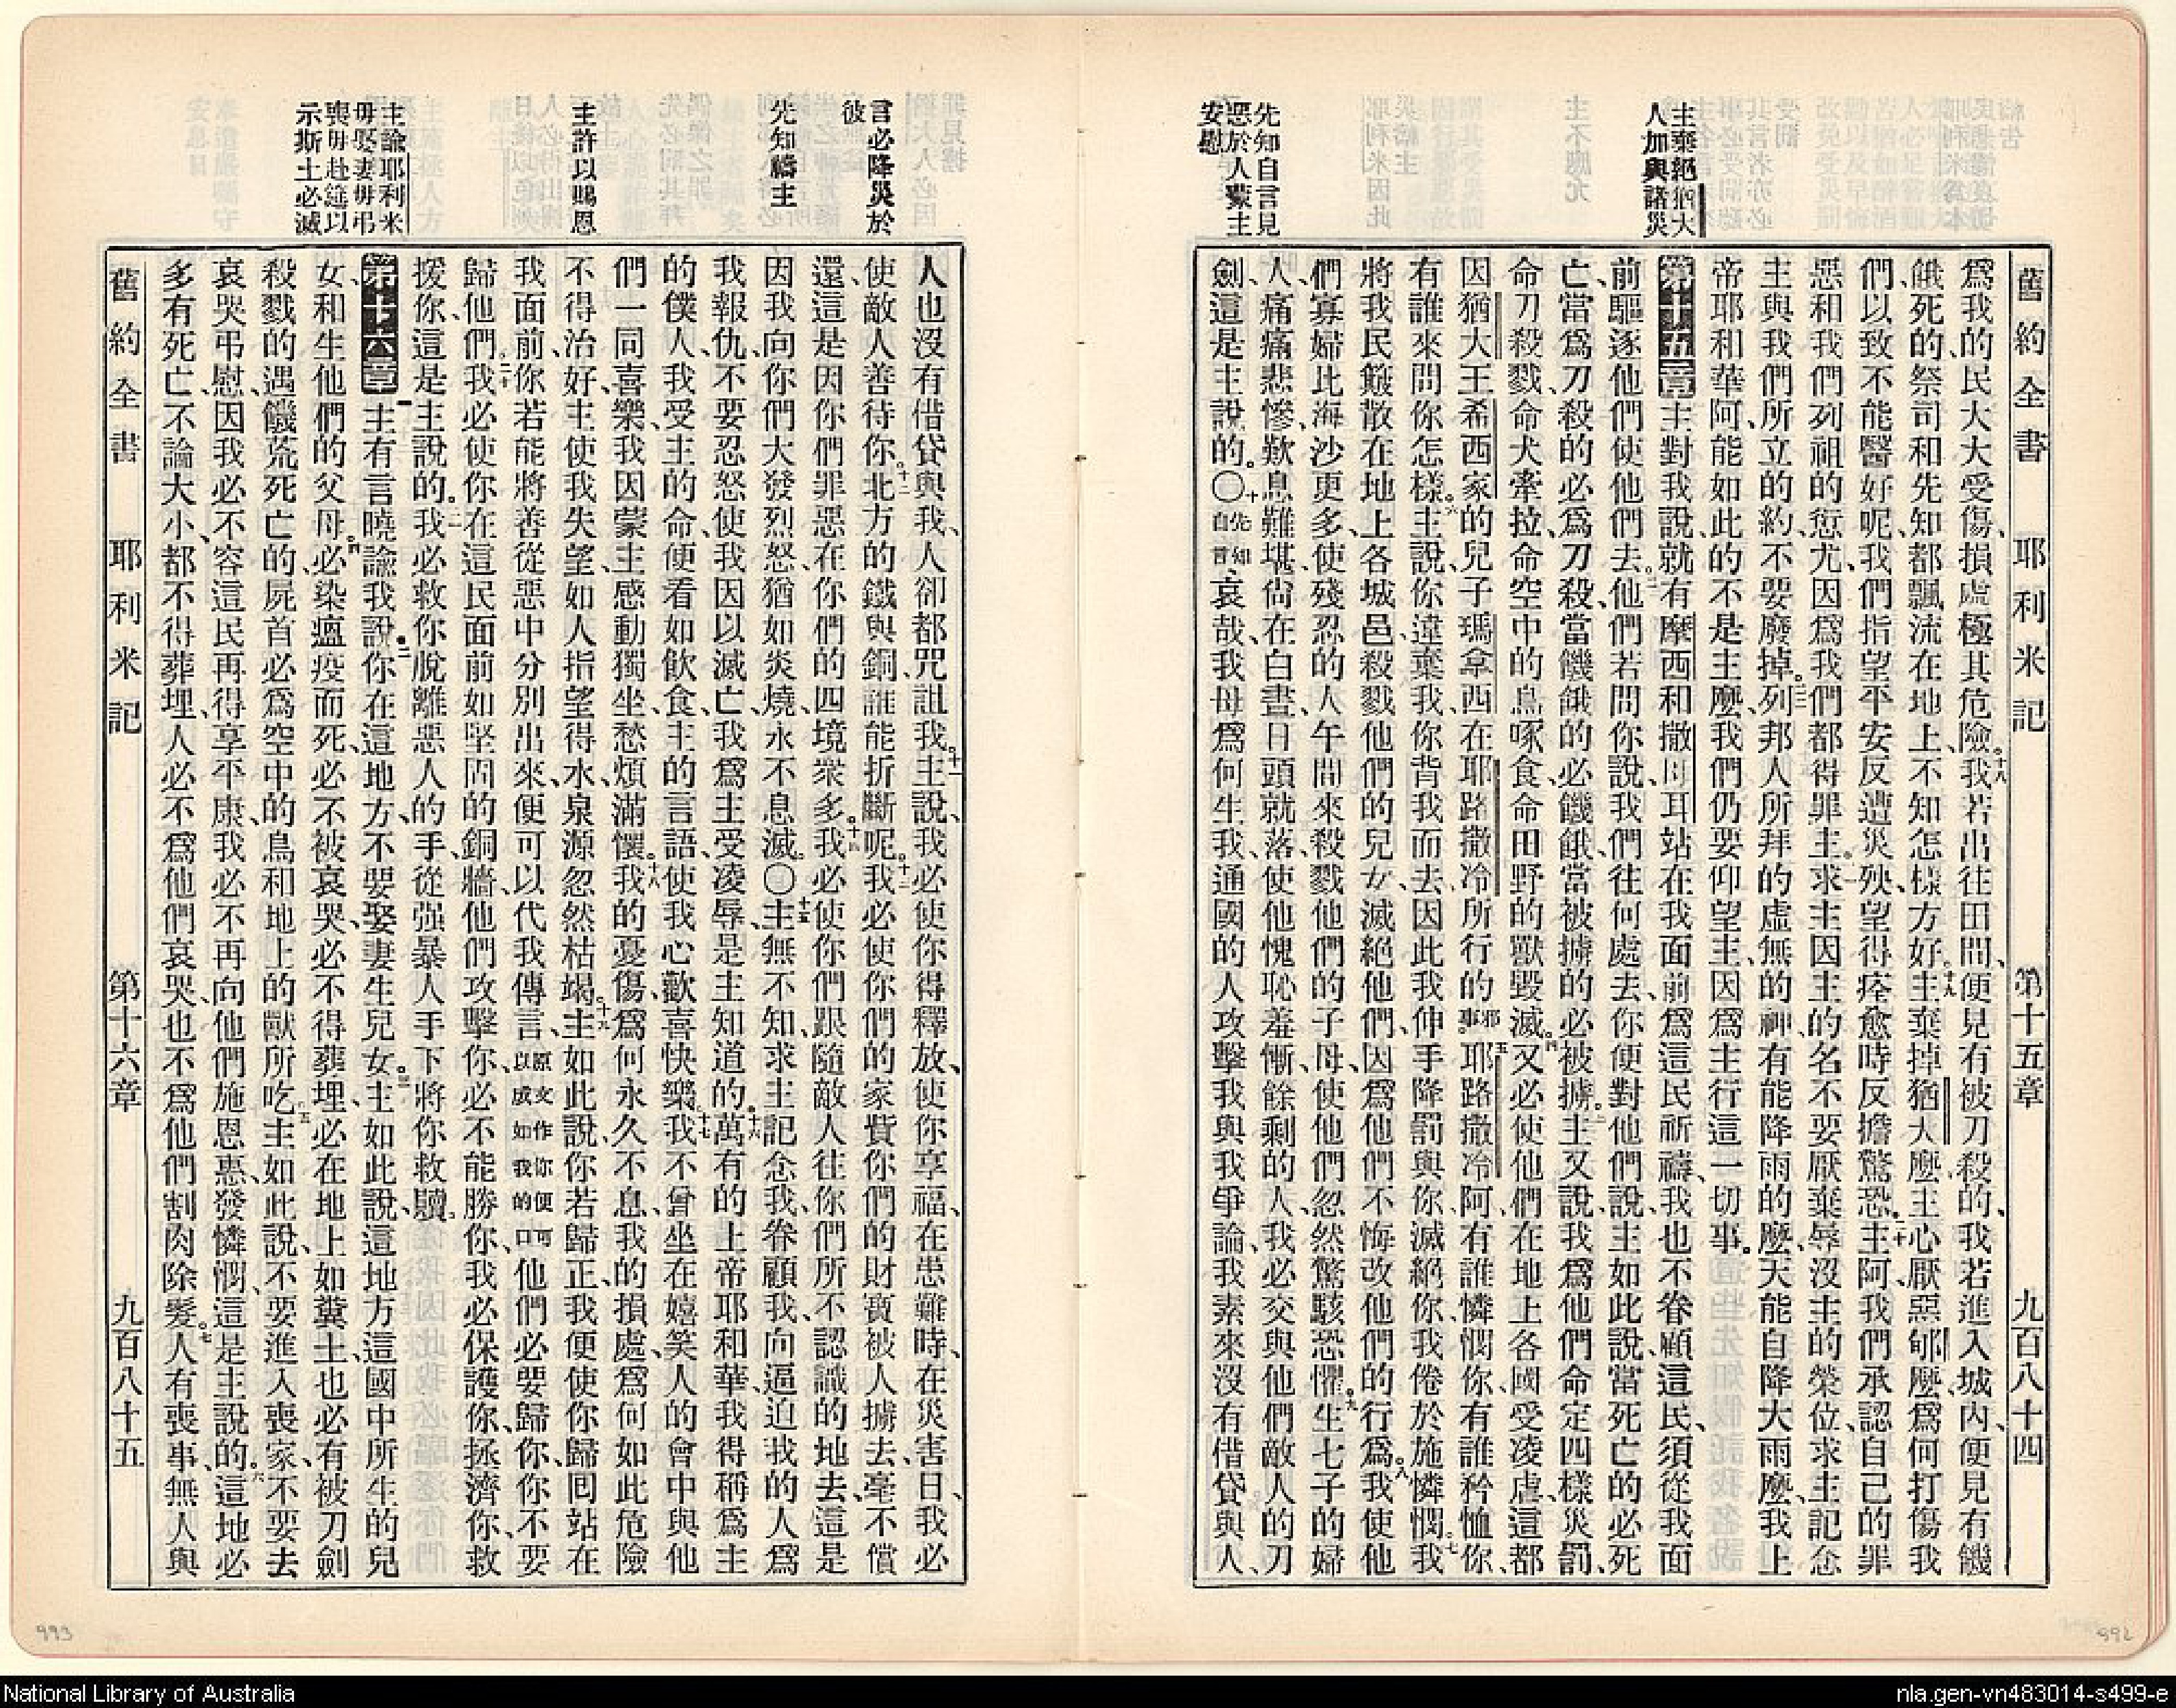 舊約全書 耶利米記 第十五章 九百八十四
主棄絕猶大
人加與諸災
先知自言見
惡於人蒙主
安慰
爲我的民大大受傷、損處極其危險。十八我若出往田間、便見有被刀殺的、我若進入城內、便見有饑
餓死的、祭司和先知都飄流在地上、不知怎樣方好。十九主棄掉猶大麼、主心厭惡郇麼、爲何打傷我
們、以致不能醫好呢、我們指望平安、反遭災殃、望得痊愈時、反擔驚恐。二十主阿、我們承認自己的罪
惡和我們列祖的愆尤、因爲我們都得罪主。二一求主因主的名、不要厭棄、辱沒主的榮位、求主記念
主與我們所立的約、不要廢掉。二二列邦人所拜的虛無的神、有能降雨的麼、天能自降大雨麼、我上
帝耶和華阿、能如此的不是主麼、我們仍要仰望主、因爲主行這一切事。
第十五章 主對我說、就有摩西和撒母耳站在我面前、爲這民祈禱、我也不眷顧這民、須從我面
前驅逐他們、使他們去。二他們若問你說、我們往何處去、你便對他們說、主如此說、當死亡的必死
亡、當爲刀殺的必爲刀殺、當饑餓的必饑餓、當被擄的必被擄。三主又說、我爲他們命定四樣災罰、
命刀殺戮、命犬牽拉、命空中的鳥啄食、命田野的獸毀滅。四又必使他們在地上各國受凌虐、這都
因猶大王希西家的兒子瑪拿西在耶路撒冷所行的邪事。五耶路撒冷阿、有誰憐憫你、有誰矜恤你、
有誰來問你怎樣。六主說、你違棄我、你背我而去、因此我伸手降罰與你、滅絕你、我倦於施憐憫。七我
將我民簸散在地上各城邑、殺戮他們的兒女、滅絕他們、因爲他們不悔改他們的行爲。八我使他
們寡婦比海沙更多、使殘忍的人午間來殺戮他們的子母、使他們忽然驚駭恐懼。九生七子的婦
人、痛痛悲慘、歎息難堪、尙在白晝、日頭就落、使他愧恥羞慚、餘剩的人、我必交與他們敵人的刀
劍、這是主說的。〇十先知自言、哀哉、我母爲何生我、通國的人攻擊我、與我爭論、我素來沒有借貸與人、
舊約全書 耶利米記 第十六章 九百八十五
言必降災於
彼
先知禱主
主許以賜恩
主諭耶利米
毋娶妻毋弔
喪毋赴筵以
示斯土必滅
人也沒有借貸與我、人卻都咒詛我。十一主說、我必使你得釋放、使你享福、在患難時、在災害日、我必
使敵人善待你。十二北方的鐵與銅、誰能折斷呢。十三我必使你們的家貲、你們的財寶、被人擄去、毫不償
還、這是因你們罪惡在你們的四境衆多。十四我必使你們跟隨敵人、往你們所不認識的地去、這是
因我向你們大發烈怒、猶如炎燒、永不息滅。〇十五主無不知、求主記念我、眷顧我、向逼迫我的人爲
我報仇、不要忍怒、使我因以滅亡、我爲主受凌辱、是主知道的。十六萬有的上帝耶和華、我得稱爲主
的僕人、我受主的命、便看如飲食、主的言語、使我心歡喜快樂。十七我不曾坐在嬉笑人的會中、與他
們一同喜樂、我因蒙主感動獨坐、愁煩滿懷。十八我的憂傷、爲何永久不息、我的損處、爲何如此危險
不得治好、主使我失望、如人指望得水、泉源忽然枯竭。十九主如此說、你若歸正、我便使你歸回、站在
我面前、你若能將善從惡中分別出來、便可以代我傳言、原文作你便可以成如我的口他們必要歸你、你不要
歸他們。二十我必使你在這民面前如堅固的銅牆、他們攻擊你、必不能勝你、我必保護你、拯濟你、救
援你、這是主說的。二一我必救你脫離惡人的手、從强暴人手下、將你救贖。
第十六章 一主有言曉諭我說。二你在這地方、不要娶妻生兒女。三主如此說、這地方這國中所生的兒
女、和生他們的父母。四必染瘟疫而死、必不被哀哭、必不得葬埋、必在地上如糞土、也必有被刀劍
殺戮的、遇饑荒死亡的、屍首必爲空中的鳥和地上的獸所吃。五主如此說、不要進入喪家、不要去
哀哭弔慰、因我必不容這民再得享平康、我必不再向他們施恩惠、發憐憫、這是主說的。六這地必
多有死亡、不論大小、都不得葬埋、人必不爲他們哀哭、也不爲他們割肉除髮。七人有喪事、無人與
993
992
National Library of Australia
nla.gen-vn483014-s499-e